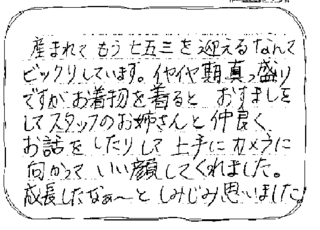 産まれてもう七五三を迎えるなんて
ビックリしています。イヤイヤ期真っ盛り
ですがお着物を着ると おすましを
してスタッフのお姉さんと仲良く、
お話をしたりして上手にカメラに
向かって いい顔してくれました。
成長したなぁ〜と しみじみ思いました。